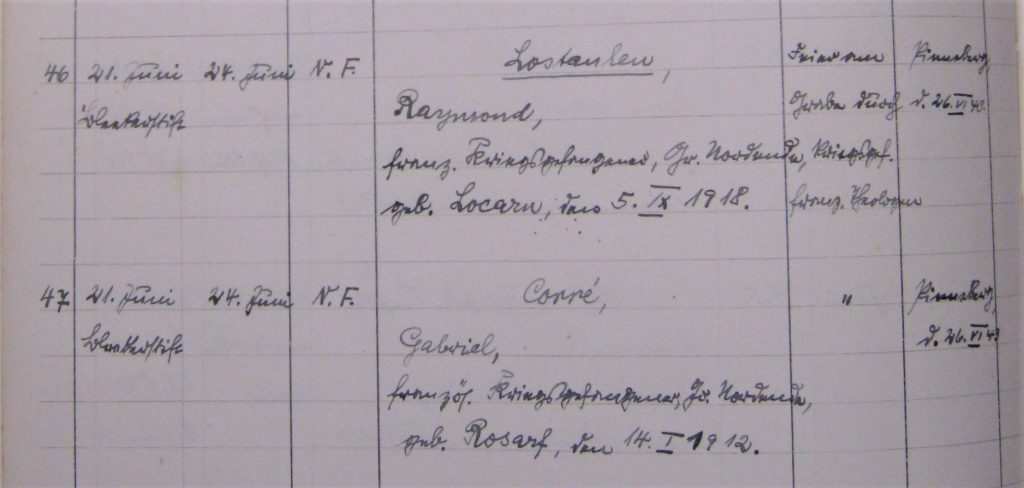 46 21. Juni 24. Juni N. F. Lostanlen, Feier am Pinneberg,
Grabe durch d. 26. VI 43.
Raymond,
franz. Kriegsgefangener, Gr. Nordende, kriegsgef.
geb. Locarn, den 5. IX 1918. franz. Theologen
47 21. Juni 24. Juni N. F. Corré, " Pinneberg,
d. 26. VI 43
Gabriel,
französ. Kriegsgefangener, Gr. Nordende,
geb. Rosarf, den 14. I 1912.